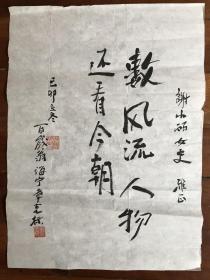 謝小碩女史 雅正
數風流人物
还看今朝
己卯立冬
百歲翁海宁章克标